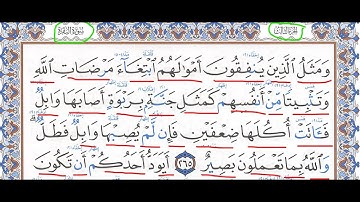 الجزء الثالث سورة البقرة
وَمَثَلُ الَّذِينَ يُنفِقُونَ أَمْوَالَهُمُ ابْتِغَاءَ مَرْضَاتِ اللَّهِ
وَتَثْبِيتًا مِّنْ أَنفُسِهِمْ كَمَثَلِ جَنَّةٍ بِرَبْوَةٍ أَصَابَهَا وَابِلٌ
فَآتَتْ أُكُلَهَا ضِعْفَيْنِ فَإِن لَّمْ يُصِبْهَا وَابِلٌ فَطَلٌّ
وَاللَّهُ بِمَا تَعْمَلُونَ بَصِيرٌ ٢٦٥ أَيَوَدُّ أَحَدُكُمْ أَن تَكُونَ